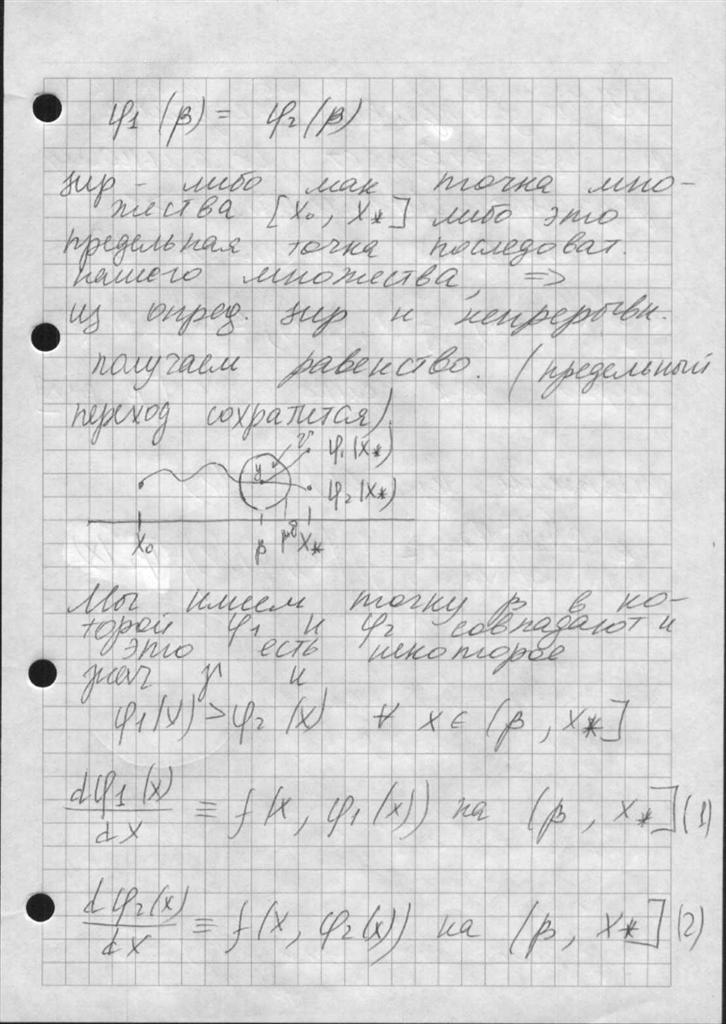 φ₁(β) = φ₂(β)
sup - либо мак точка мно-
жества [x₀, x*] либо это
предельная точка последоват.
нашего множества, =>
из опред. sup и непрерывн.
получаем равенство. (предельный
переход сохратится).
γ
φ₁(x*)
φ₂(x*)
x₀ β x*
Мы имеем точку β в ко-
торой φ₁ и φ₂ совпадают и
это есть некоторое
знач γ и
φ₁(x) > φ₂(x) ∀ x ∈ (β, x*]
dφ₁(x)/dx ≡ f(x, φ₁(x)) на (β, x*] (1)
dφ₂(x)/dx ≡ f(x, φ₂(x)) на (β, x*] (2)